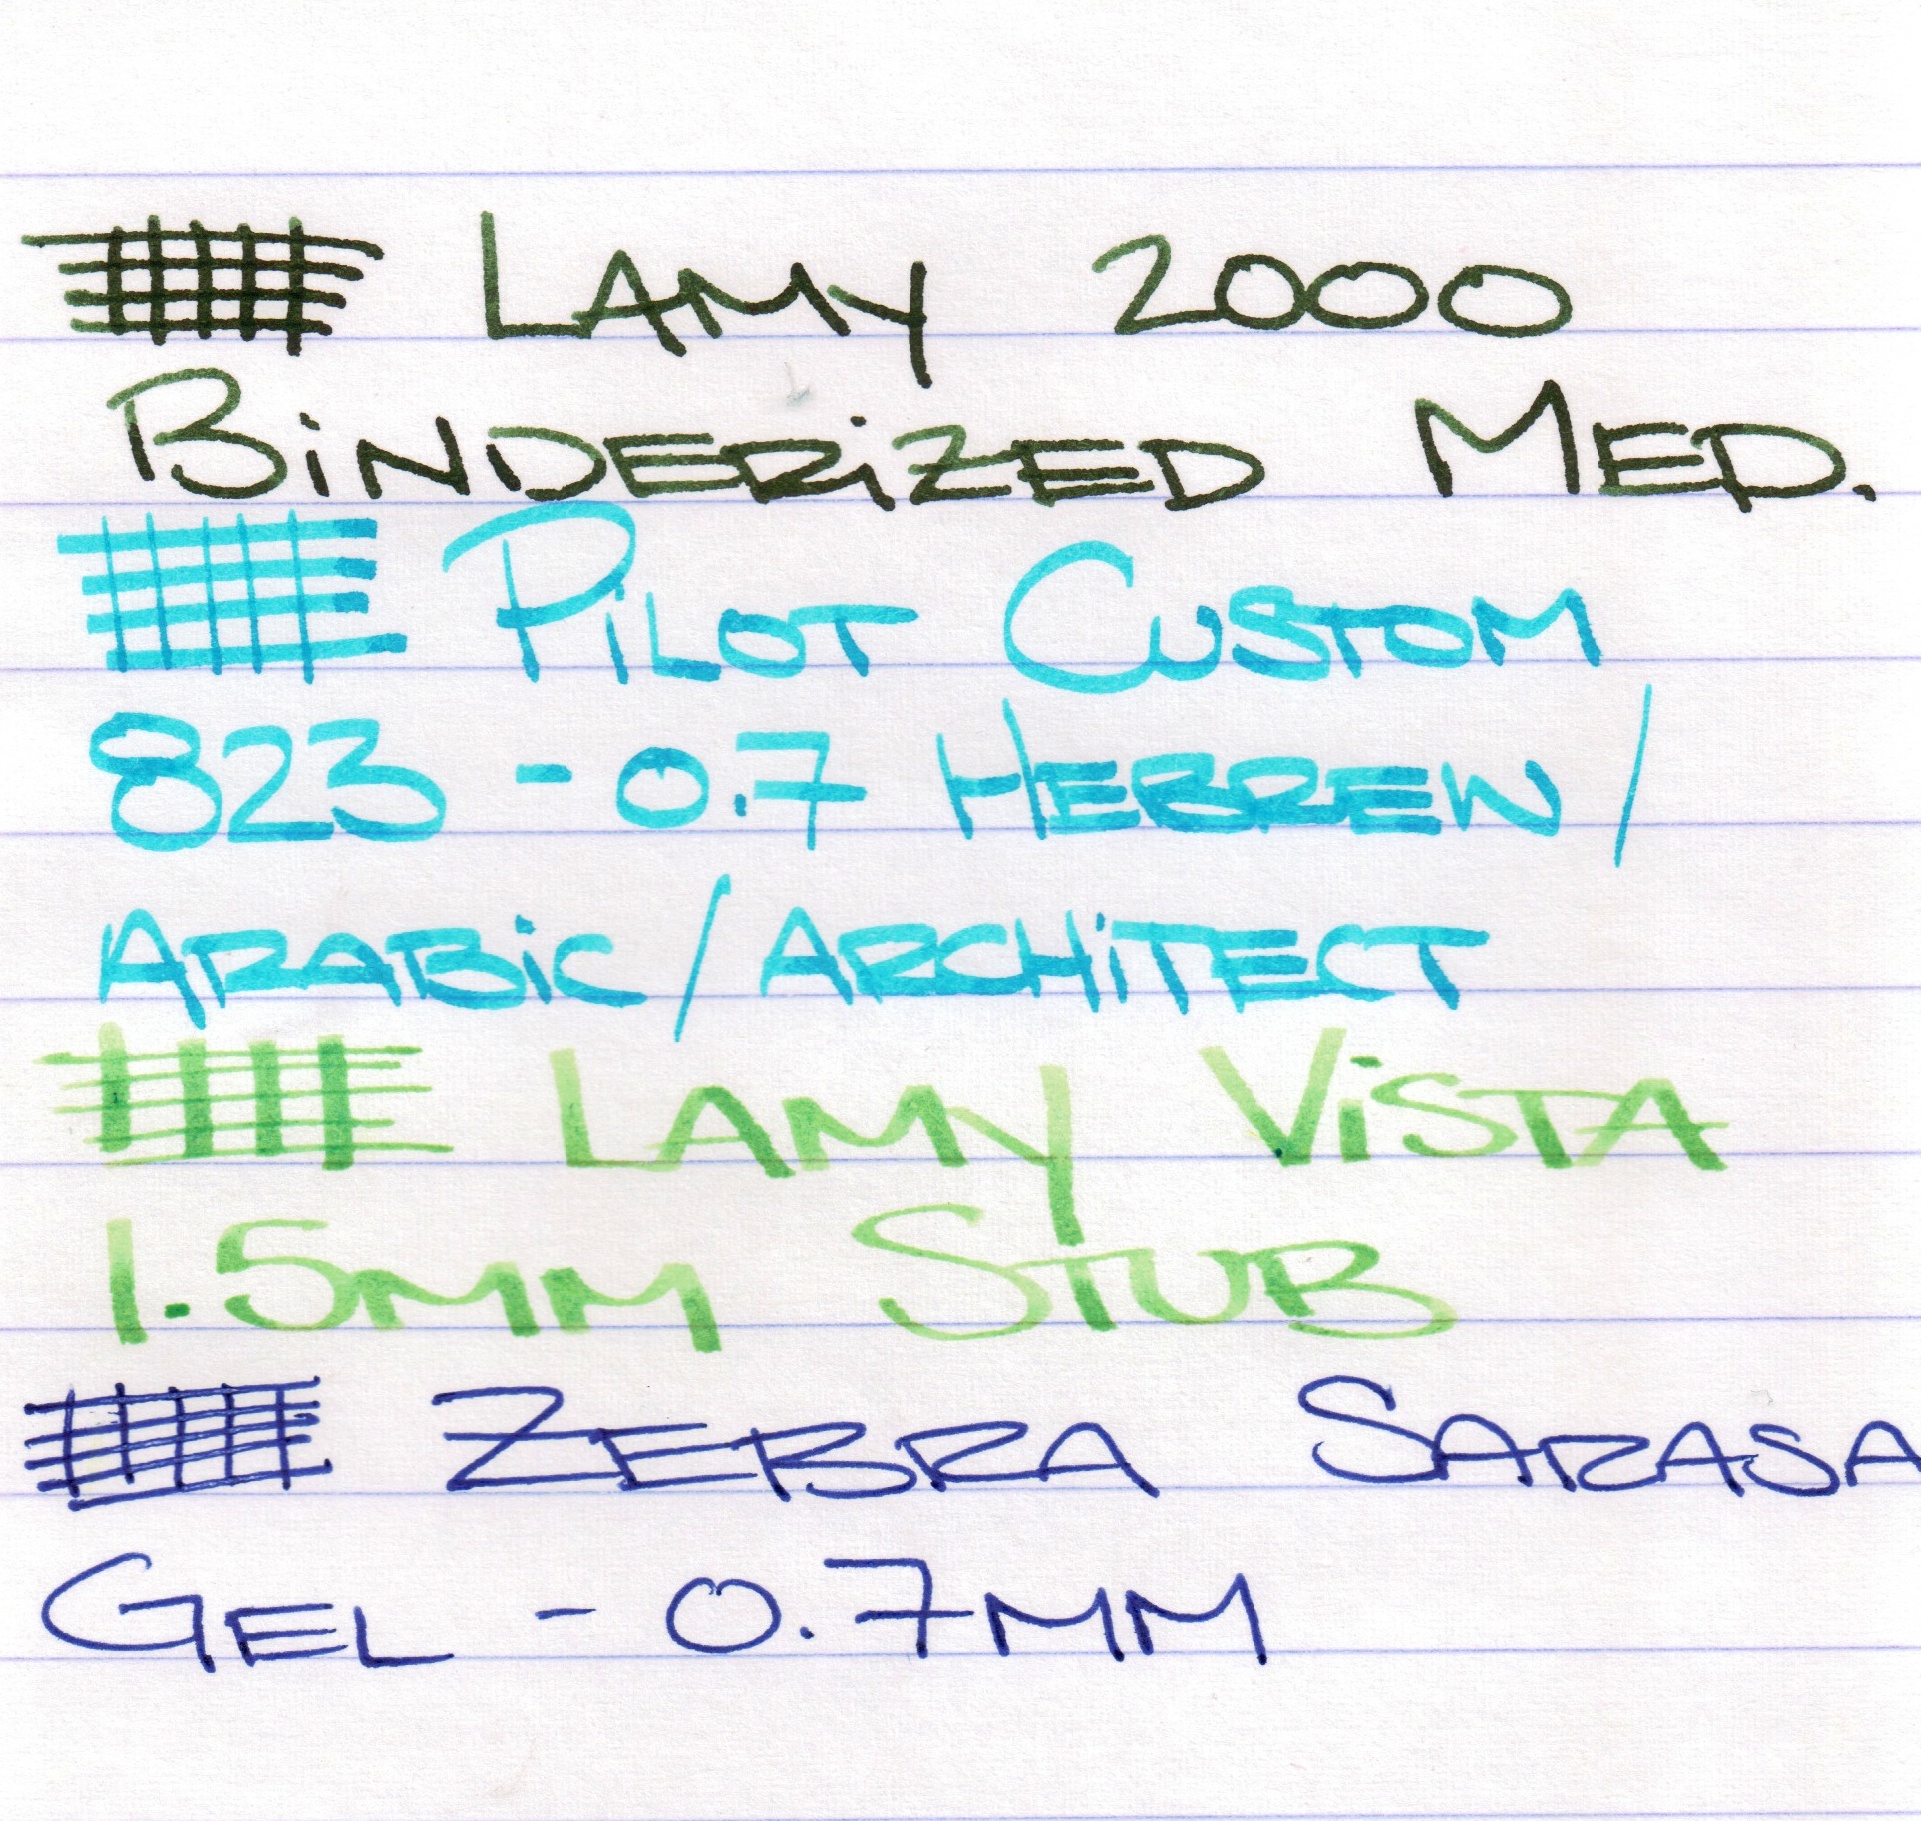 LAMY 2000
BiNDERiZED MED.
PiLOT CUSTOM
823 - 0.7 HEBREW /
ARABiC / ARCHiTECT
LAMY ViSTA
1.5MM STUB
ZEBRA SARASA
GEL - 0.7MM